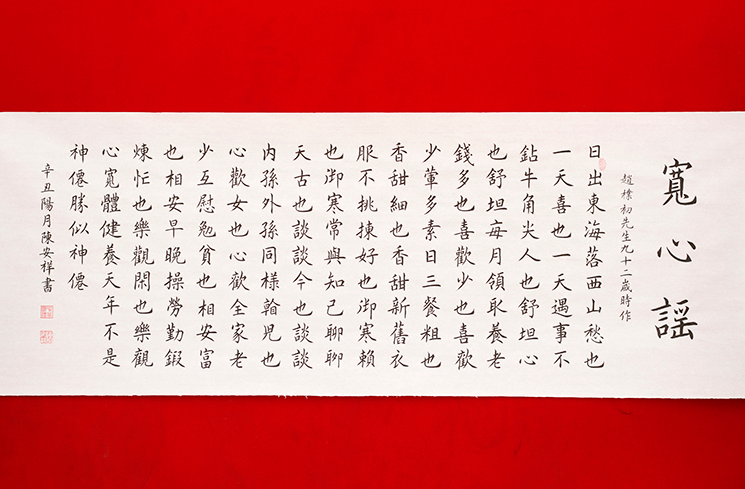 寬心謡
趙樸初先生九十二歲時作
日出東海落西山愁也
一天喜也一天遇事不
鉆牛角尖人也舒坦心
也舒坦每月領取養老
錢多也喜歡少也喜歡
少葷多素日三餐粗也
香甜細也香甜新舊衣
服不挑揀好也御寒賴
也御寒常與知己聊聊
天古也談談今也談談
内孫外孫同樣翰兒也
心歡女也心歡全家老
少互慰勉貧也相安富
也相安早晚操勞勤鍛
煉忙也樂觀閑也樂觀
心寬體健養天年不是
神僊勝似神僊
辛丑陽月陳安祥書